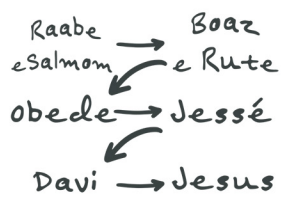 Raabe
e Salmom
Boaz
e Rute
Obede
Jessé
Davi
Jesus